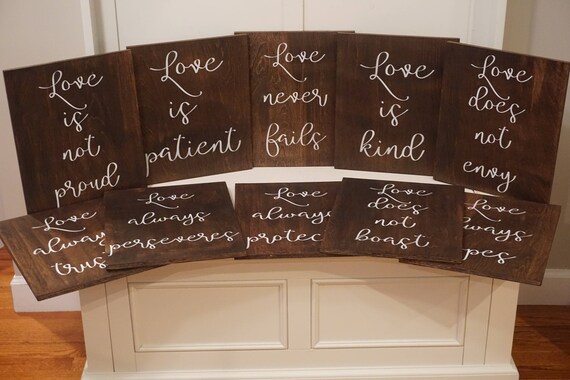 Love
is
not
proud
Love
is
patient
Love
never
fails
Love
is
kind
Love
does
not
envy
Love
always
trus
Love
always
perseveres
Love
always
protec
Love
does
not
boast
Love
pes